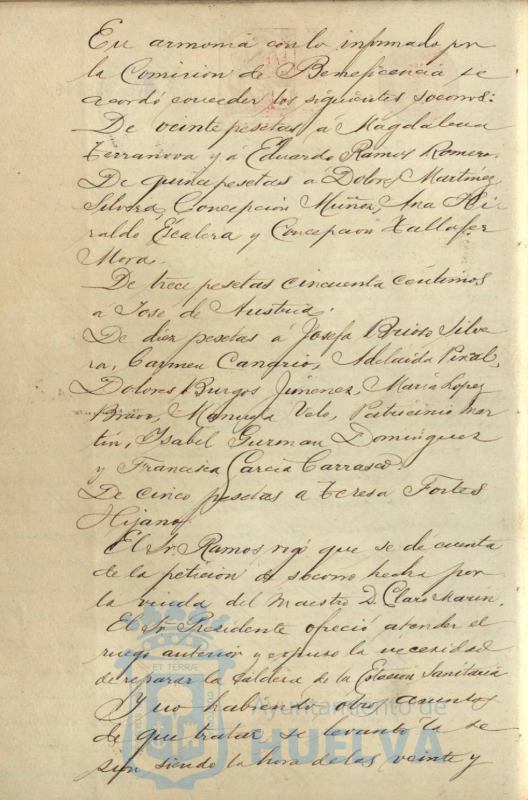 En armonia con lo informado por
la Comision de Beneficencia se
acordó conceder los siguientes socorros:
De veinte pesetas á Magdalena
Terranova y á Eduardo Ramos Romero.
De quince pesetas á Dolores Martinez
Silvera, Concepcion Muñoz, Ana Hi
raldo Escalera y Concepcion Tallafer
Mora.
De trece pesetas cincuenta centimos
a José de Austria.
De diez pesetas á Josefa Brioso Silve
ra, Carmen Canario, Adelaida
Dolores Burgos Jimenez, Maria Lopez
Bravo, Manuela Velo, Patrocinio Mar
tin, Isabel Guzman Dominguez
y Francisca Garcia Carrasco.
De cinco pesetas a Teresa Fortes
Hijano.
El Sr. Ramos rogó que se de cuenta
de la peticion de socorro hecha por
la viuda del Maestro D. Claro Marin.
El Sr. Presidente ofreció atender el
ruego anterior y expuso la necesidad
de reparar la caldera de la Estacion Sanitaria
Y no habiendo otro asuntos
de que tratar se levantó la se
sion siendo la hora de las veinte y
ET TERRAE
Ayuntamiento de
HUELVA